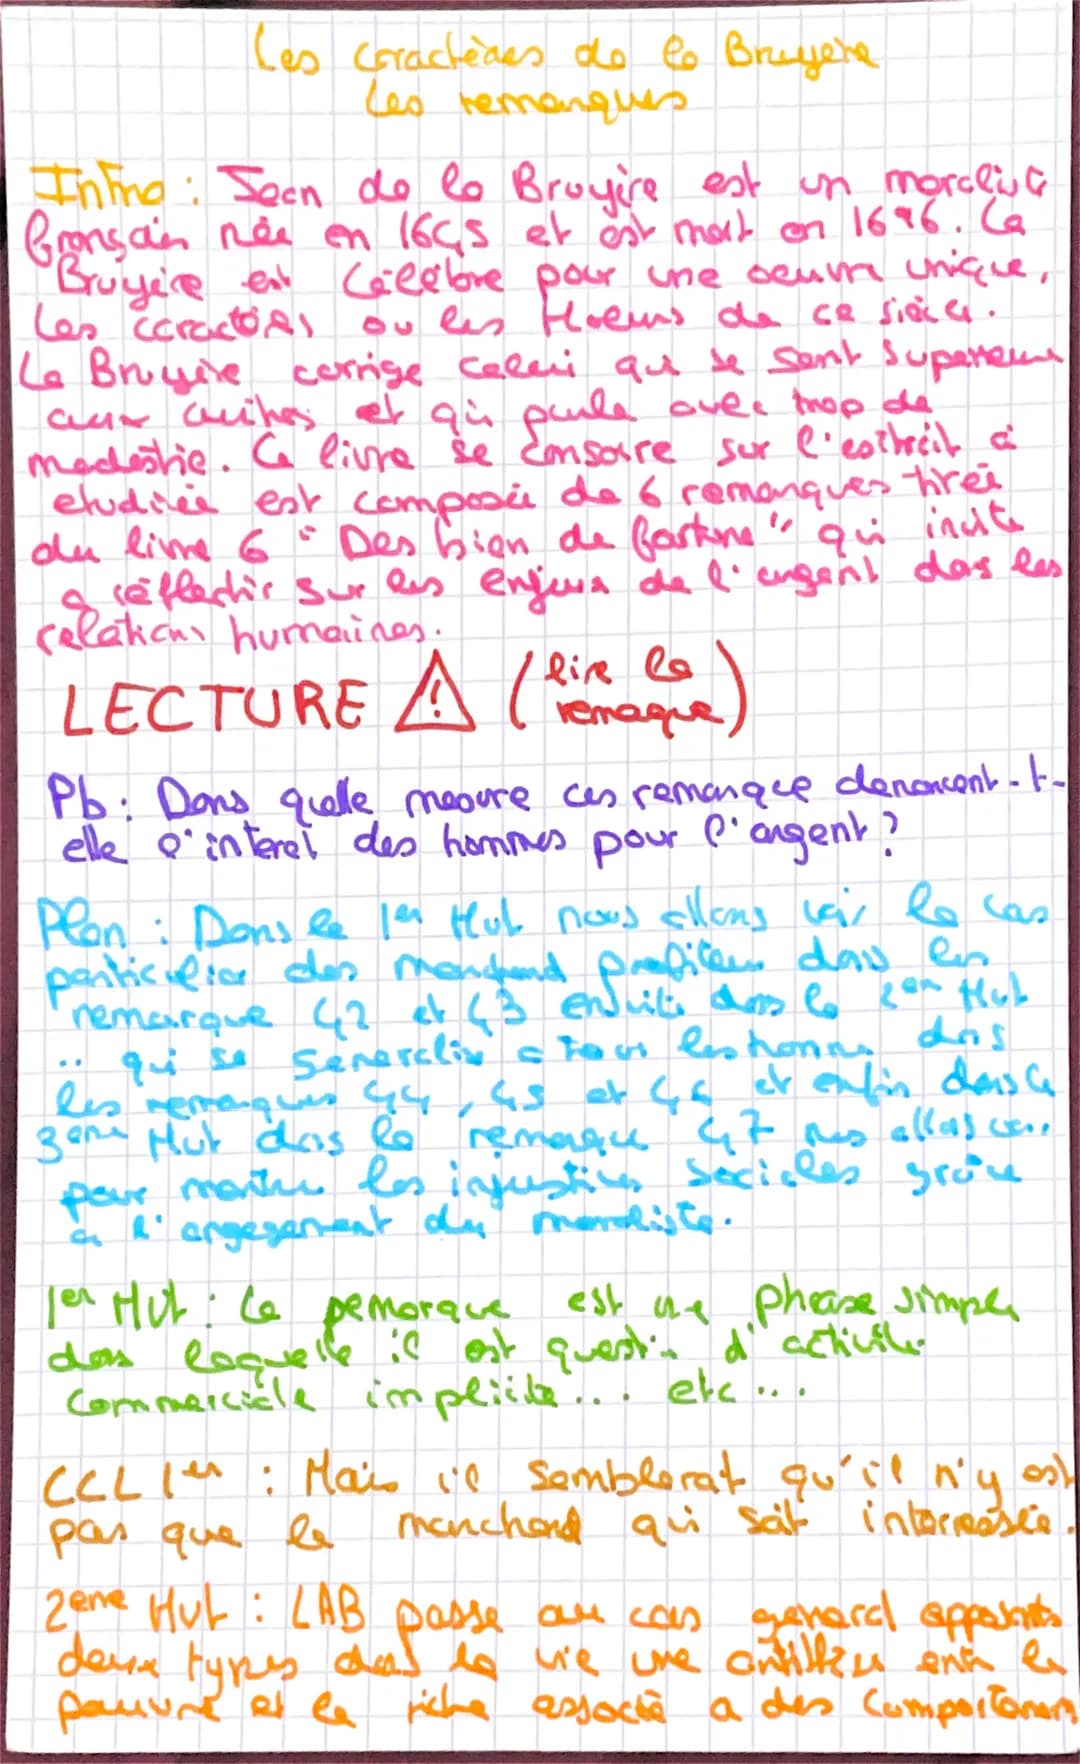 Les caractères de la Bruyère
Les remarques
Intro : Jean de la Bruyère est un moraliste
français née en 1645 et est mort en 1696. La
Bruyère est célèbre pour une oeuvre unique,
Les caractères ou les Moeurs de ce siècle.
La Bruyère corrige celui qui se sent superieur
aux autres et qui parle avec trop de
modestie. Ce livre se consacre sur l'estrait à
etudiée est composée de 6 remarques tirée
du livre 6 " Des bien de fortune " qui incite
a réflechir sur les enjeux de l'argent das les
relations humaines.
LECTURE ⚠ ( lire la
remaque )
Pb : Dans quelle mesure ces remarque denoncent-t-
elle l'interet des hommes pour l'argent ?
Plan : Dans le 1er Mvt nous allons voir le cas
particulier des marchand profiteur dans les
remarque 42 et 43 ensuite dans le 2em Mvt
.. qui se generalise a tous les homme dans
les remarques 44, 45 et 46 et enfin dans le
3eme Mvt dans la remarque 47 nous allons voir
pour montre les injustices sociales grâce
a l'engagement du moraliste.
1er Mvt : La remarque est une phrase simple
dans laquelle il est question d'activité
commerciale implicite... etc...
CCL 1er : Mais il semblerat qu'il n'y est
pas que le marchand qui soit interressée.
2eme Mvt : LAB passe au cas general
deux types dans la vie une entre le
pauvre et le riche associé a des comportements